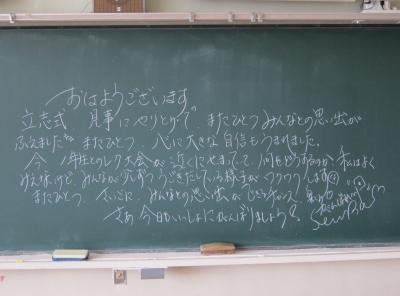 おはようございます
立志式 見事にやりとげて またひとつ みんなとの思い出が
ふえましたね またひとつ、心に大きな自信もうまれました。
今 1年生とのレク大会が 近くにせまってて、何をどうするのか 私はよく
みえないけど、みんなが 動いている様子が ワクワクします
またひとつ、みんなとの思い出が
さあ 今日もいっしょにがんばりましょう